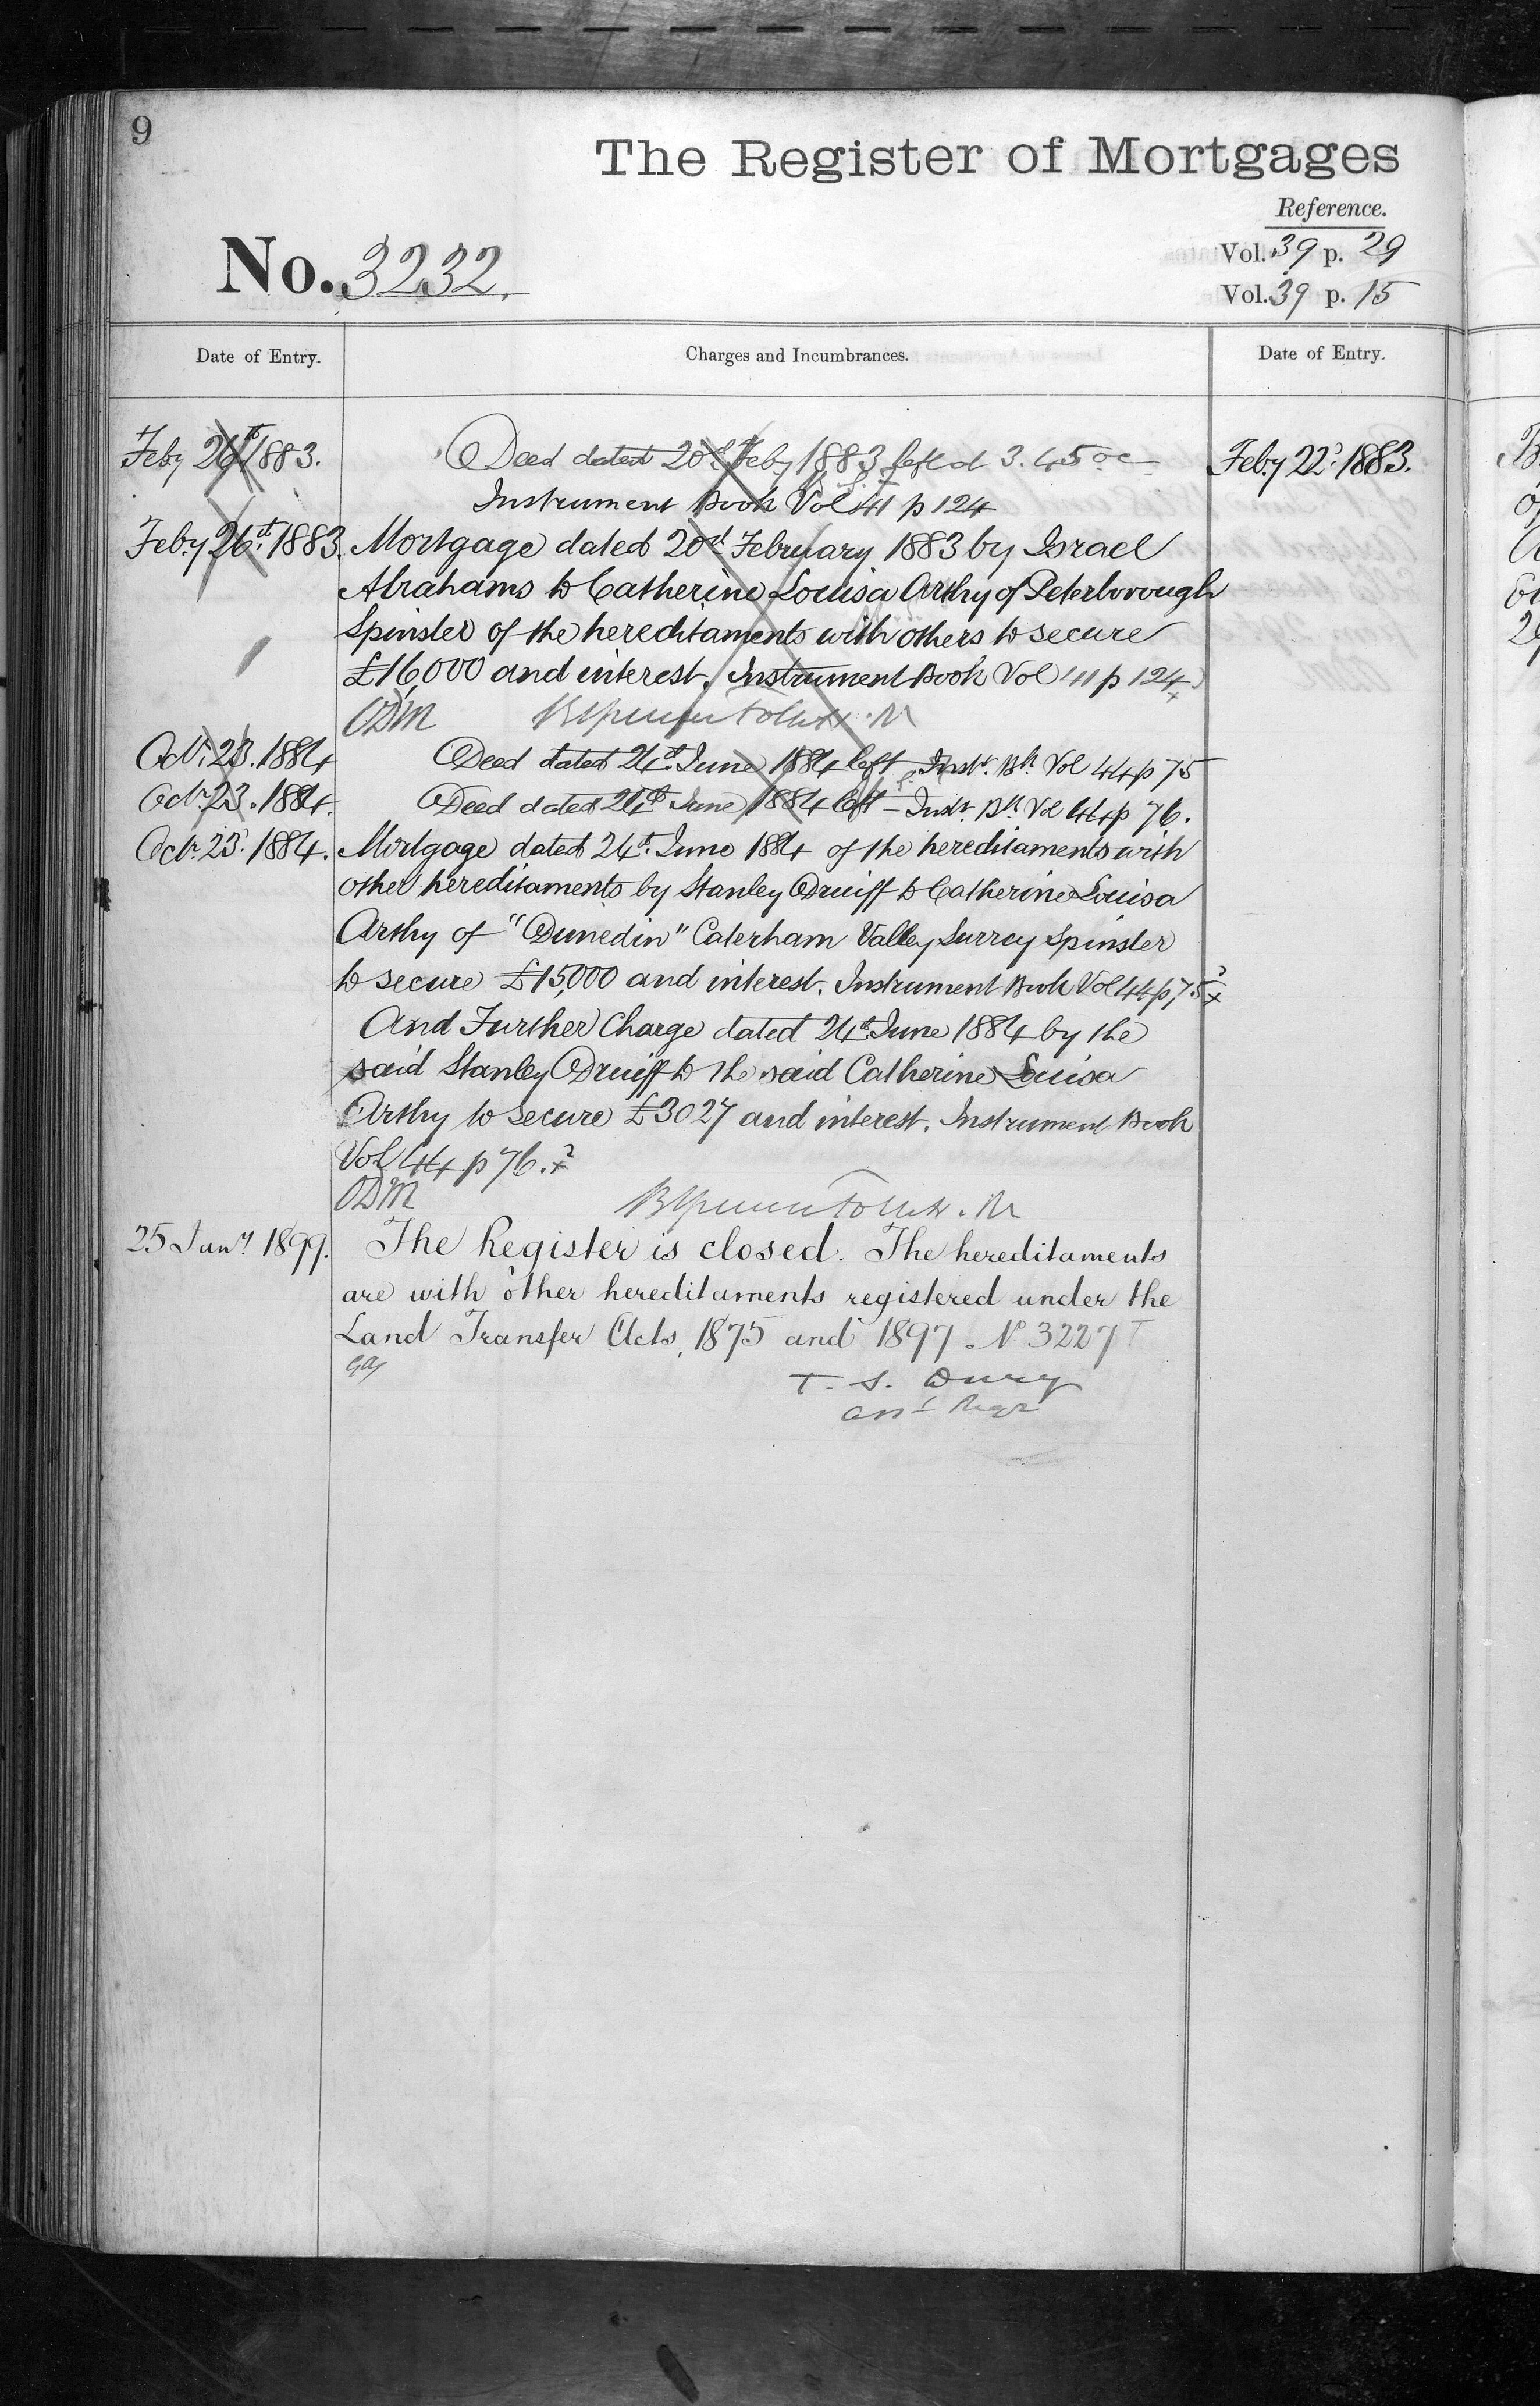 9
The Register of Mortgages
Reference.
No. 3232.
Vol. 39 p. 29
Vol. 39 p. 15
Date of Entry.
Charges and Incumbrances.
Date of Entry.
Feby 1883.
Deed dated 20th Feby 1883 left at 3.45
Feby 22d 1883.
Instrument Book Vol 41 p 124
Feby 26th 1883.
Mortgage dated 20th February 1883 by Israel
Abrahams to Catherine Louisa Arthy of Peterborough
Spinster of the hereditaments with others to secure
£16,000 and interest. Instrument Book Vol 41 p 124
ODM
Octr. 23. 1884
Deed dated 24th June 1884 left Instr. Bk Vol 44 p 75
Octr. 23. 1884.
Deed dated 24th June 1884 left – Instr. Bk Vol 44 p 76.
Octr. 23. 1884.
Mortgage dated 24th June 1884 of the hereditaments with
other hereditaments by Stanley Druiff to Catherine Louisa
Arthy of "Dunedin" Caterham Valley Surrey Spinster
to secure £15,000 and interest. Instrument Book Vol 44 p 75
And Further Charge dated 24th June 1884 by the
said Stanley Druiff to the said Catherine Louisa
Arthy to secure £3027 and interest. Instrument Book
Vol 44 p 76.
ODM
25 Jany 1899.
The Register is closed. The hereditaments
are with other hereditaments registered under the
Land Transfer Acts, 1875 and 1897 No 3227
T. S. Dury
Asst Regr